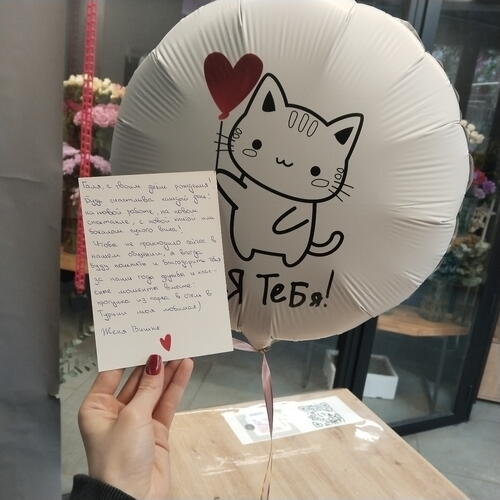 Галя, с твоим днём рождения!
Будь счастлива каждый день:
на новой работе, на новом
спектакле, с новой книгой или
бокалом сухого вина!
Чтобы не происходило сейчас в
нашем общении, я всегда
буду помнить и благодарить тебя
за наши годы дружбы и клас-
сные моменты вместе:
прогулка из парка в отели в
Турции моя любимая)
Женя Вишне
Я ТеБя!